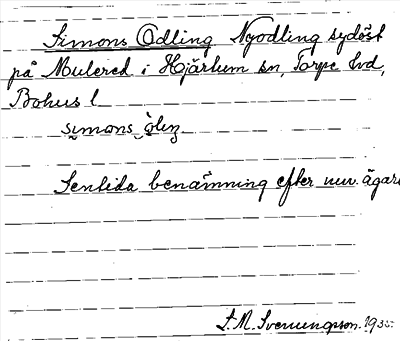 Simons Odling Nyodling sydöst
på Mulered i Hjärtum sn, Torpe hd,
Bohus l.
simons öleŋ
Sentida benämning efter nuv. ägare
S.M. Svenungson. 193